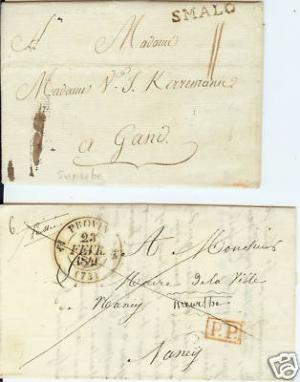 SMALO
A Madame
Madame Vve J. Kerremans
a Gand.
Superbe
6.
PROVIN
23
FEVR
1841
(73)
A Monsieur
Maire de la Ville
Nancy Meurthe
P.P.
Nancy
ebay